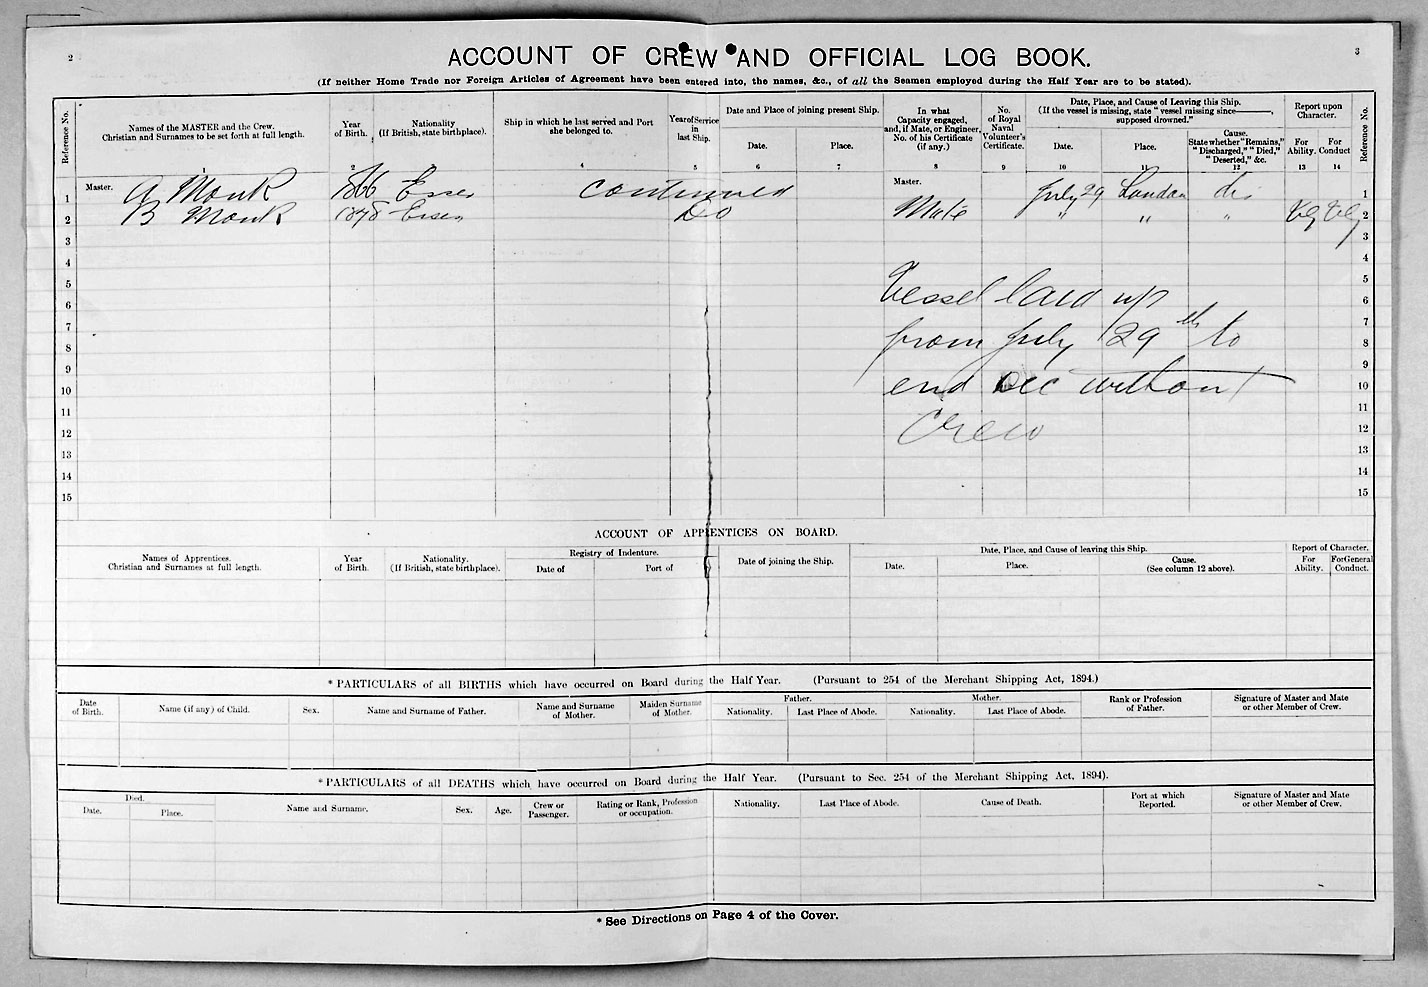 2
3
ACCOUNT OF CREW AND OFFICIAL LOG BOOK.
(If neither Home Trade nor Foreign Articles of Agreement have been entered into, the names, &c., of all the Seamen employed during the Half Year are to be stated).
Reference No.
Names of the MASTER and the Crew.
Christian and Surnames to be set forth at full length.
1
Year
of Birth.
2
Nationality
(If British, state birthplace).
3
Ship in which he last served and Port
she belonged to.
4
Year of Service
in
last Ship.
5
Date and Place of joining present Ship.
Date.
6
Place.
7
In what
Capacity engaged,
and, if Mate, or Engineer,
No. of his Certificate
(if any.)
8
No.
of Royal
Naval
Volunteer's
Certificate.
9
Date, Place, and Cause of Leaving this Ship.
(If the vessel is missing, state "vessel missing since———,
supposed drowned."
Date.
10
Place.
11
Cause.
State whether "Remains,"
"Discharged," "Died,"
"Deserted," &c.
12
Report upon
Character.
For
Ability.
13
For
Conduct
14
Reference No.
1 Master. A Monk 1866 Essex continued Master. July 29 London dis 1
2 B Monk 1898 Essex Do Mate " " " VG VG 2
3 3
4 4
5 5
6 Vessel laid up 6
7 7
8 from July 29th to 8
9 9
10 end Dec without 10
11 11
12 Crew 12
13 13
14 14
15 15
ACCOUNT OF APPRENTICES ON BOARD.
Names of Apprentices.
Christian and Surnames at full length.
Year
of Birth.
Nationality.
(If British, state birthplace).
Registry of Indenture.
Date of
Port of
Date of joining the Ship.
Date, Place, and Cause of leaving this Ship.
Date.
Place.
Cause.
(See column 12 above).
Report of Character.
For
Ability.
For General
Conduct.
* PARTICULARS of all BIRTHS which have occurred on Board during the Half Year. (Pursuant to 254 of the Merchant Shipping Act, 1894.)
Date
of Birth.
Name (if any) of Child.
Sex.
Name and Surname of Father.
Name and Surname
of Mother.
Maiden Surname
of Mother.
Father.
Nationality.
Last Place of Abode.
Mother.
Nationality.
Last Place of Abode.
Rank or Profession
of Father.
Signature of Master and Mate
or other Member of Crew.
* PARTICULARS of all DEATHS which have occurred on Board during the Half Year. (Pursuant to Sec. 254 of the Merchant Shipping Act, 1894).
Died.
Date.
Place.
Name and Surname.
Sex.
Age.
Crew or
Passenger.
Rating or Rank, Profession
or occupation.
Nationality.
Last Place of Abode.
Cause of Death.
Port at which
Reported.
Signature of Master and Mate
or other Member of Crew.
* See Directions on Page 4 of the Cover.